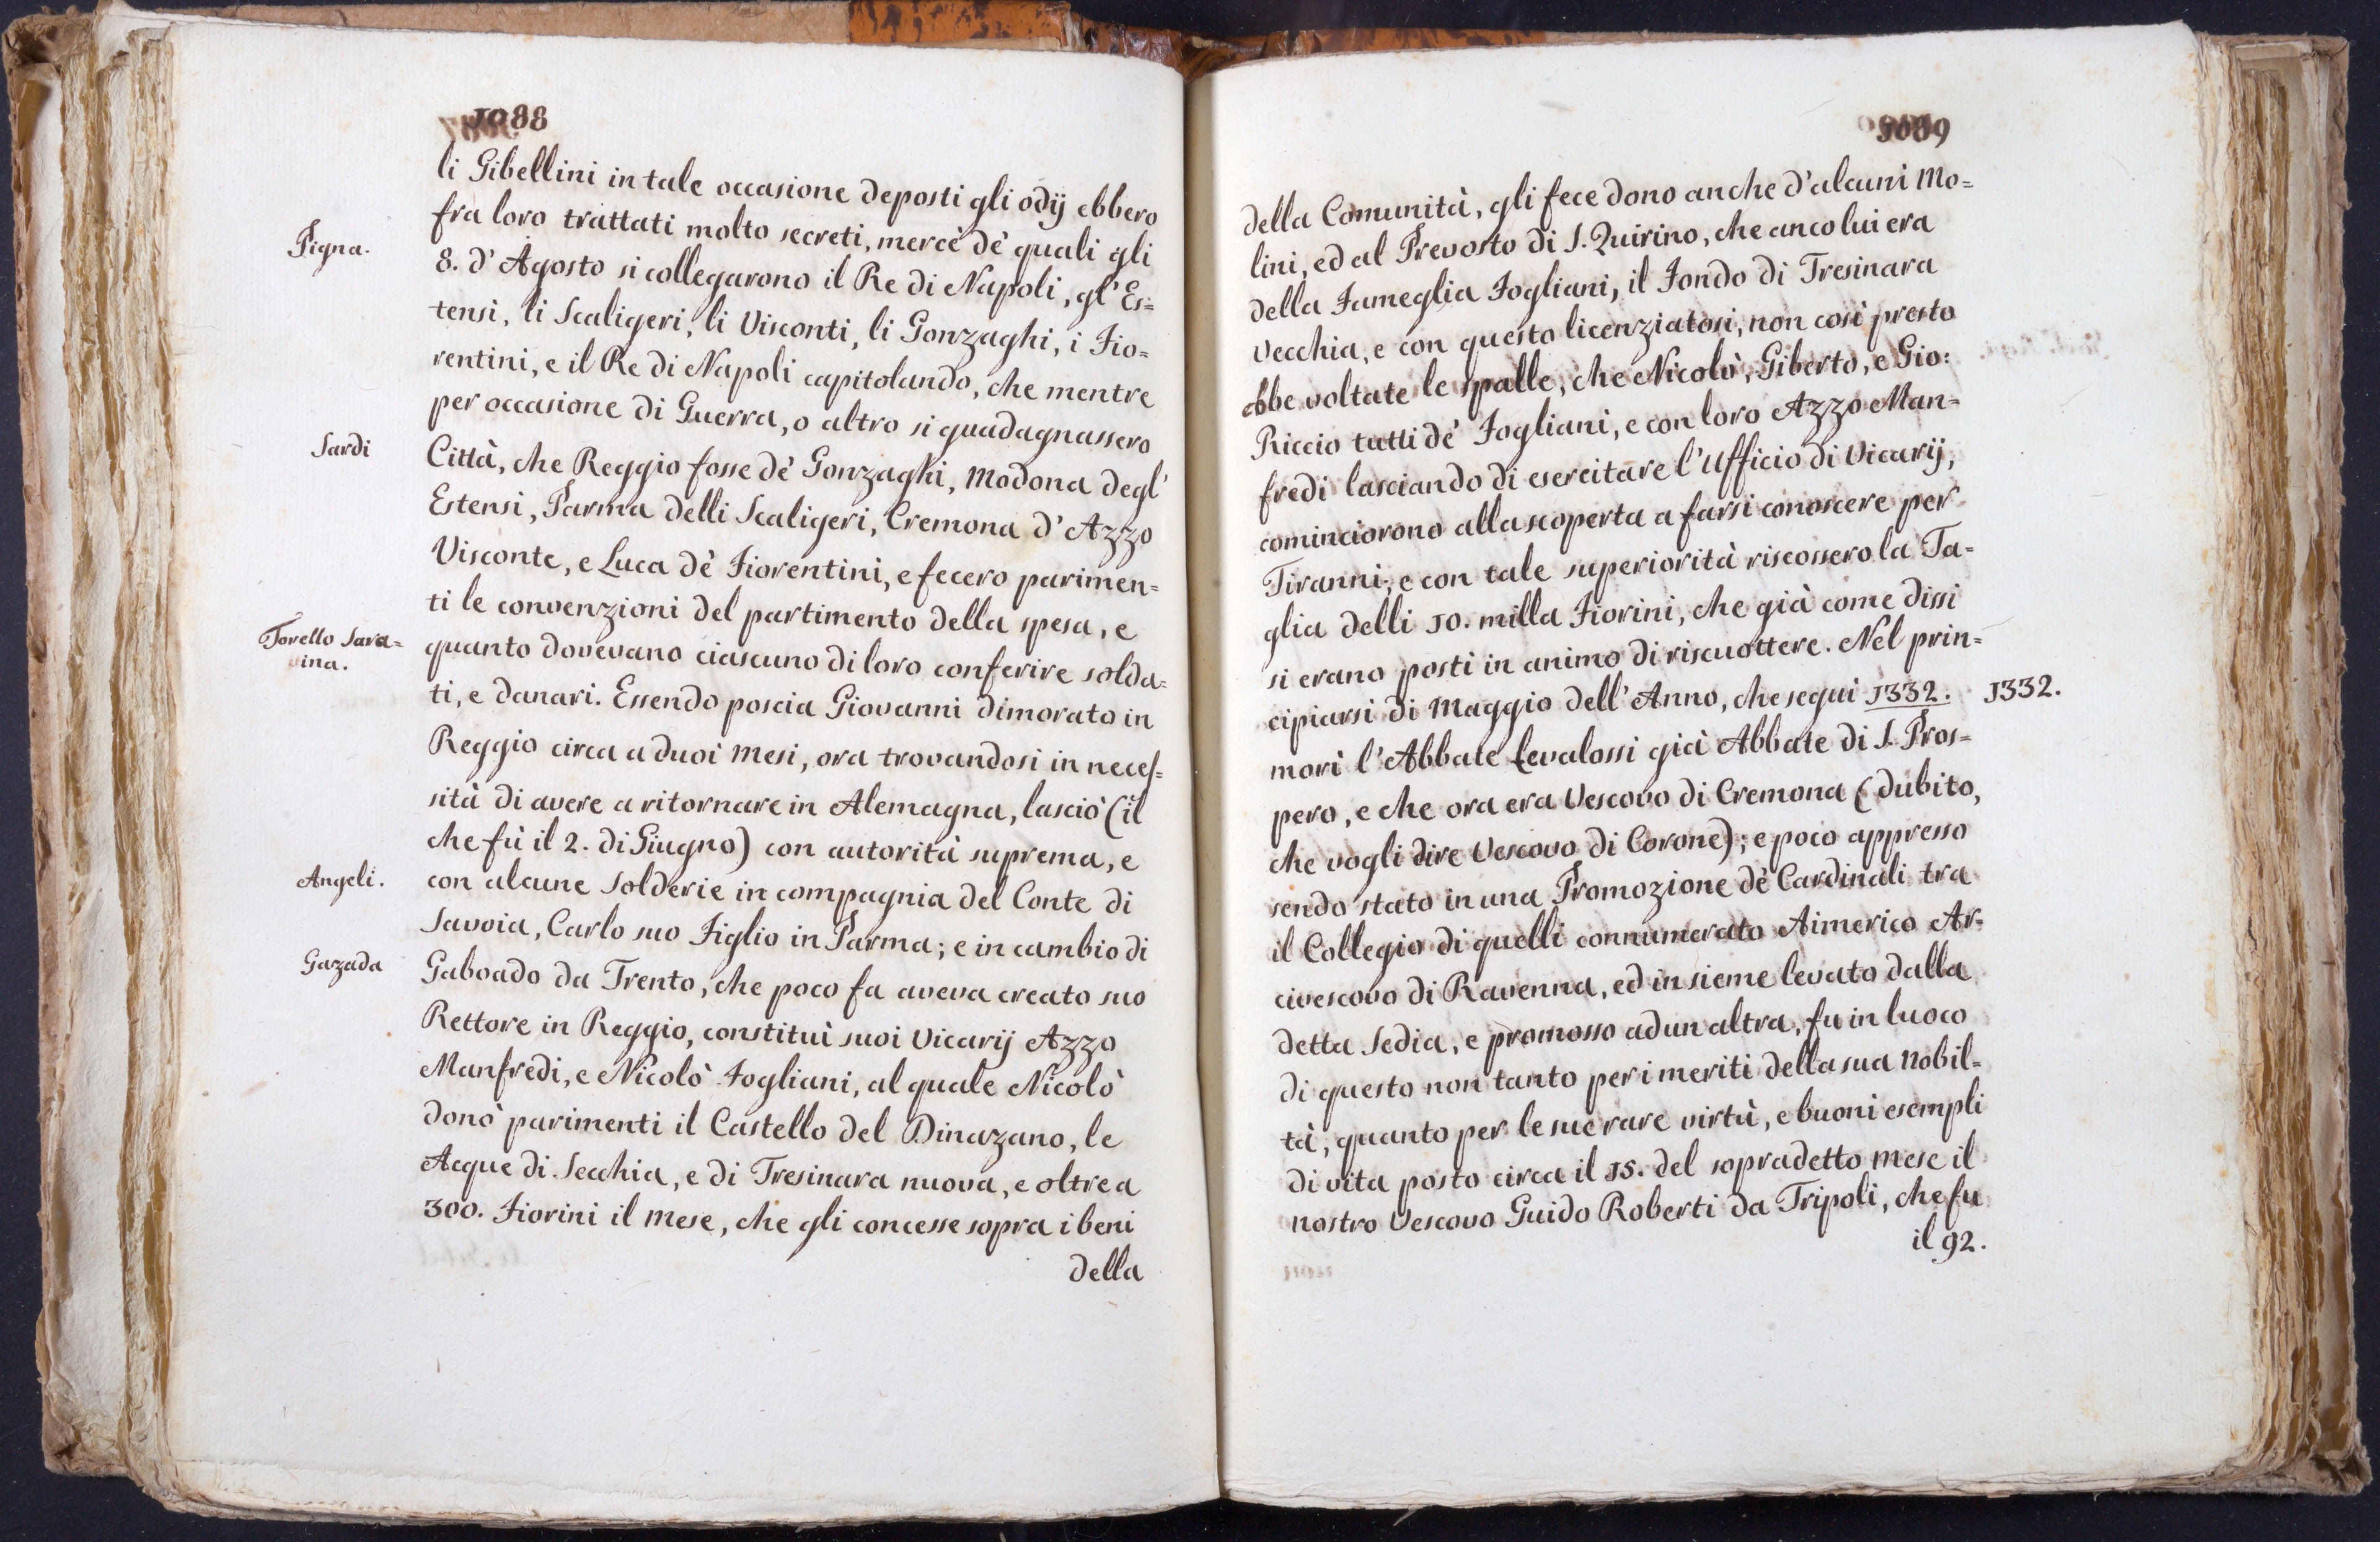 1088
li Gibellini in tale occasione deposti gli odij ebbero
fra loro trattati molto secreti, mercè dè quali gli
Pigna.
8. d'Agosto si collegarono il Re di Napoli, gl'Es=
tensi, li Scaligeri, li Visconti, li Gonzaghi, i Fio=
rentini, e il Re di Napoli capitolando, che mentre
per occasione di Guerra, o altro si guadagnassero
Sardi
Città, che Reggio fosse dè Gonzaghi, Modona degl'
Estensi, Parma delli Scaligeri, Cremona d'Azzo
Visconte, e Luca dè Fiorentini, e fecero parimen=
ti le convenzioni del partimento della spesa, e
Torello Sara=
vina.
quanto dovevano ciascuno di loro conferire solda=
ti, e danari. Essendo poscia Giovanni dimorato in
Reggio circa a duoi Mesi, ora trovandosi in neces=
sità di avere a ritornare in Alemagna, lasciò (il
che fù il 2. di Giugno) con autorità suprema, e
Angeli.
con alcune Solderie in compagnia del Conte di
Savoia, Carlo suo Figlio in Parma; e in cambio di
Gazada
Gaboado da Trento, che poco fa aveva creato suo
Rettore in Reggio, constituì suoi Vicarij Azzo
Manfredi, e Nicolò Fogliani, al quale Nicolò
donò parimenti il Castello del Dinazano, le
Acque di Secchia, e di Tresinara nuova, e oltre a
300. Fiorini il Mese, che gli concesse sopra i beni
della
1089
della Comunità, gli fece dono anche d'alcuni Mo=
lini, ed al Prevosto di S. Quirino, che anco lui era
della Fameglia Fogliani, il Fondo di Tresinara
Vecchia, e con questo licenziatosi, non così presto
ebbe voltate le spalle, che Nicolò, Giberto, e Gio:
Riccio tutti dè Fogliani, e con loro Azzo Man=
fredi lasciando di esercitare l'Ufficio di Vicarij,
cominciorono alla scoperta a farsi conoscere per
Tiranni, e con tale superiorità riscossero la Ta=
glia delli 10. milla Fiorini, che già come dissi
si erano posti in animo di riscuottere. Nel prin=
cipiarsi di Maggio dell'Anno, che seguì 1332. 1332.
morì l'Abbate Levalossi già Abbate di S. Pros=
pero, e che ora era Vescovo di Cremona (dubito,
che vogli dire Vescovo di Corone); e poco appresso
sendo stato in una Promozione dè Cardinali tra
il Collegio di quelli connumerato Aimerico Ar=
civescovo di Ravenna, ed insieme levato dalla
detta Sedia, e promosso ad un altra, fu in luoco
di questo non tanto per i meriti della sua Nobil=
tà, quanto per le sue rare virtù, e buoni esempli
di vita posto circa il 15. del sopradetto Mese il
nostro Vescovo Guido Roberti da Tripoli, che fu
il 92.